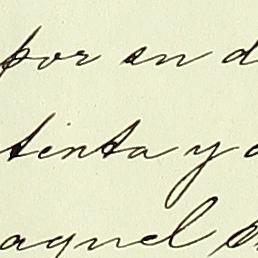 por en d
tinta y
aquel